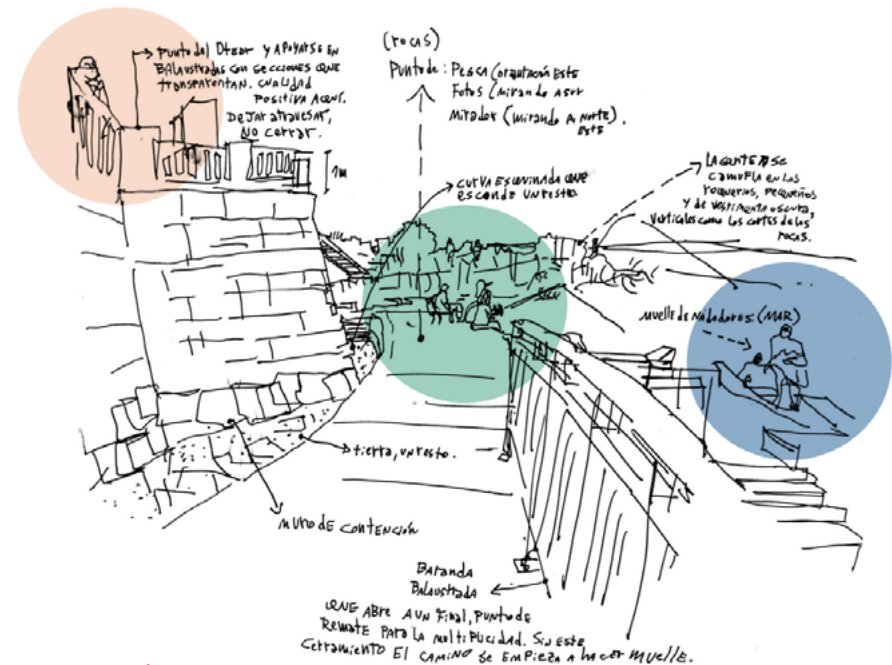 Punto del Otear y APoyarse en
BALaustradas con secciones QUE
transparentan. cualidad
positiva
Dejar atravesar,
No cerrar.
1m
(rocas)
Punto de: Pesca (orientación Este
Fotos (mirando a sur
Mirador (mirando A Norte).
Este
curva Esquinada que
esconde un resto
LA gente se
camufla en los
roqueríos, pequeños
y de vestimenta oscura,
verticales como los cortes de las
rocas.
Muelle de Nadadores (MAR)
tierra, un resto.
muro de contención
Baranda
Balaustrada
QUE ABre A un Final, punto de
Remate Para la multiplicidad. Sin este
cerramiento El camino se Empieza a hacer muelle.